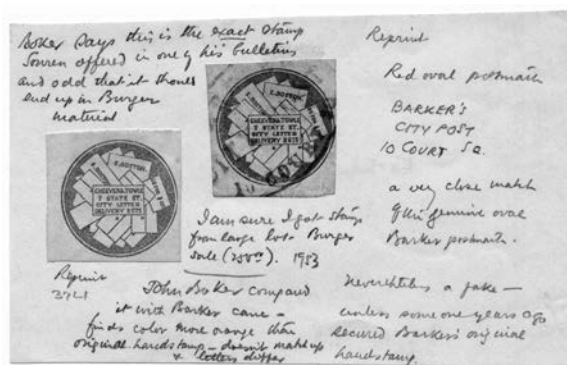 Boker says this is the exact stamp
Souren offered in one of his bulletins
and odd that it should
end up in Burger
material
CHEEVER & TOWLE
7 STATE ST.
CITY LETTER
DELIVERY 2CTS
CHEEVER & TOWLE
7 STATE ST.
CITY LETTER
DELIVERY 2CTS
Reprint
I am sure I got stamp
from large lot Burger
sale 1953
John Boker compared
it with Barker cane –
finds color more orange than
original handstamp – doesn't match up
& letters differ
Reprint
Red oval postmark
BARKER'S
CITY POST
10 COURT SQ.
a very close match
of the genuine oval
Barker postmark.
Nevertheless a fake –
unless someone years ago
secured Barker's original
handstamp.